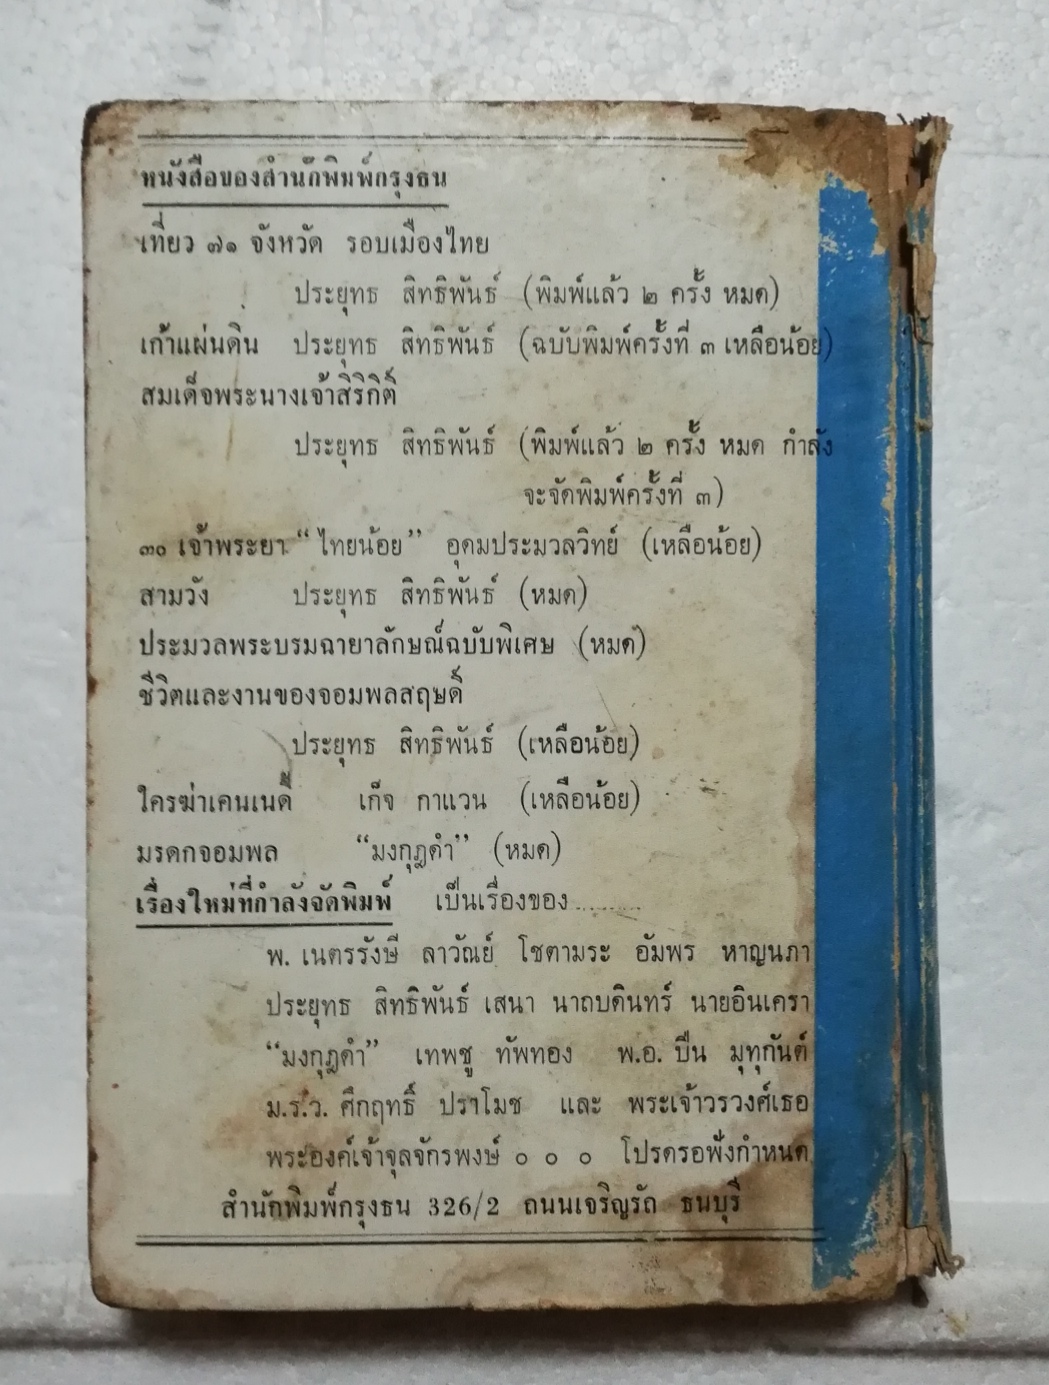 หนังสือของสำนักพิมพ์กรุงธน
เที่ยว ๗๑ จังหวัด รอบเมืองไทย
ประยุทธ สิทธิพันธ์ (พิมพ์แล้ว ๒ ครั้ง หมด)
เก้าแผ่นดิน ประยุทธ สิทธิพันธ์ (ฉบับพิมพ์ครั้งที่ ๓ เหลือน้อย)
สมเด็จพระนางเจ้าสิริกิติ์
ประยุทธ สิทธิพันธ์ (พิมพ์แล้ว ๒ ครั้ง หมด กำลัง
จะจัดพิมพ์ครั้งที่ ๓)
๓๐ เจ้าพระยา "ไทยน้อย" อุดมประมวลวิทย์ (เหลือน้อย)
สามวัง ประยุทธ สิทธิพันธ์ (หมด)
ประมวลพระบรมฉายาลักษณ์ฉบับพิเศษ (หมด)
ชีวิตและงานของจอมพลสฤษดิ์
ประยุทธ สิทธิพันธ์ (เหลือน้อย)
ใครฆ่าเคนเนดี้ เก็จ กาแวน (เหลือน้อย)
มรดกจอมพล "มงกุฎดำ" (หมด)
เรื่องใหม่ที่กำลังจัดพิมพ์ เป็นเรื่องของ.........
พ. เนตรรังษี ลาวัณย์ โชตามระ อัมพร หาญนภา
ประยุทธ สิทธิพันธ์ เสนา นาถบดินทร์ นายอินเครา
"มงกุฎดำ" เทพชู ทัพทอง พ.อ. ปิ่น มุทุกันต์
ม.ร.ว. คึกฤทธิ์ ปราโมช และ พระเจ้าวรวงศ์เธอ
พระองค์เจ้าจุลจักรพงษ์ ๐ ๐ ๐ โปรดรอฟังกำหนด
สำนักพิมพ์กรุงธน 326/2 ถนนเจริญรัถ ธนบุรี